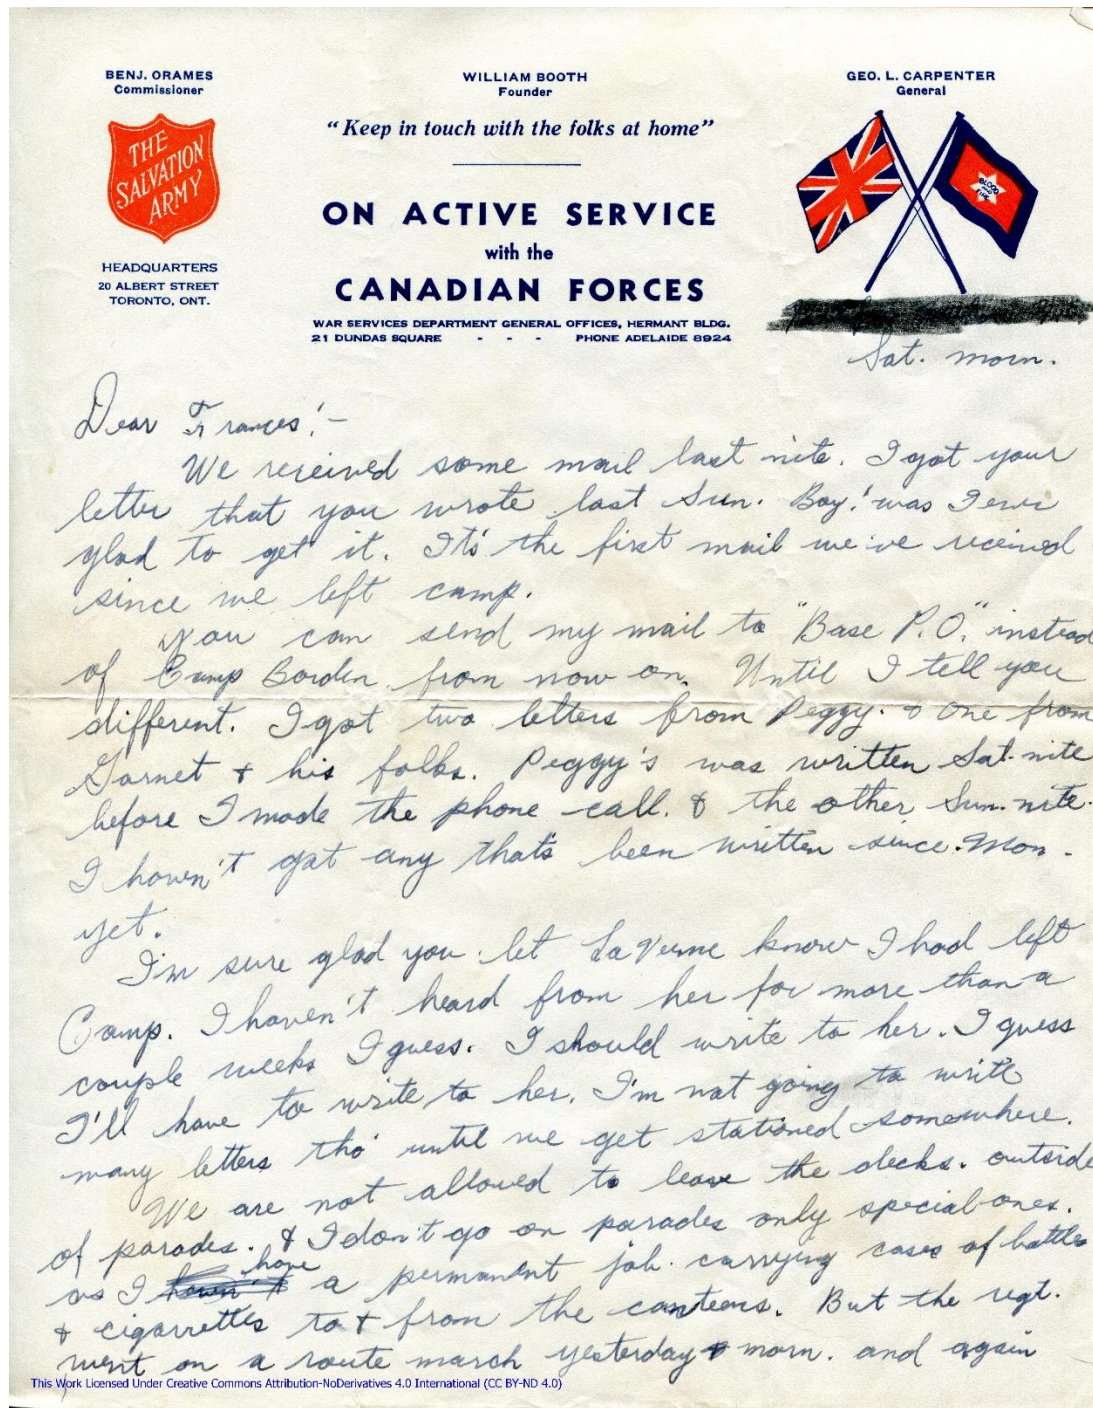 BENJ. ORAMES
Commissioner
WILLIAM BOOTH
Founder
GEO. L. CARPENTER
General
"Keep in touch with the folks at home"
THE
SALVATION
ARMY
BLOOD
AND
FIRE
ON ACTIVE SERVICE
with the
CANADIAN FORCES
HEADQUARTERS
20 ALBERT STREET
TORONTO, ONT.
WAR SERVICES DEPARTMENT GENERAL OFFICES, HERMANT BLDG.
21 DUNDAS SQUARE - - - PHONE ADELAIDE 8924
Sat. morn.
Dear Frances!-
We received some mail last nite. I got your
letter that you wrote last Sun. Boy! was I ever
glad to get it. It's the first mail we've received
since we left camp.
You can send my mail to "Base P.O." instead
of Camp Borden from now on. Until I tell you
different. I got two letters from Peggy. & one from
Garnet & his folks. Peggy's was written Sat. nite
before I made the phone call. & the other Sun. nite.
I haven't got any that's been written since. Mon.
yet.
I'm sure glad you let LaVerne know I had left
Camp. I haven't heard from her for more than a
couple weeks I guess. I should write to her. I guess
I'll have to write to her. I'm not going to write
many letters tho' until we get stationed somewhere.
We are not allowed to leave the decks. outside
of parades. & I don't go on parades only special ones.
as I have a permanent job. carrying cases of bottles
& cigarrettes to & from the canteens. But the regt.
went on a route march yesterday morn. and again
This Work Licensed Under Creative Commons Attribution-NoDerivatives 4.0 International (CC BY-ND 4.0)